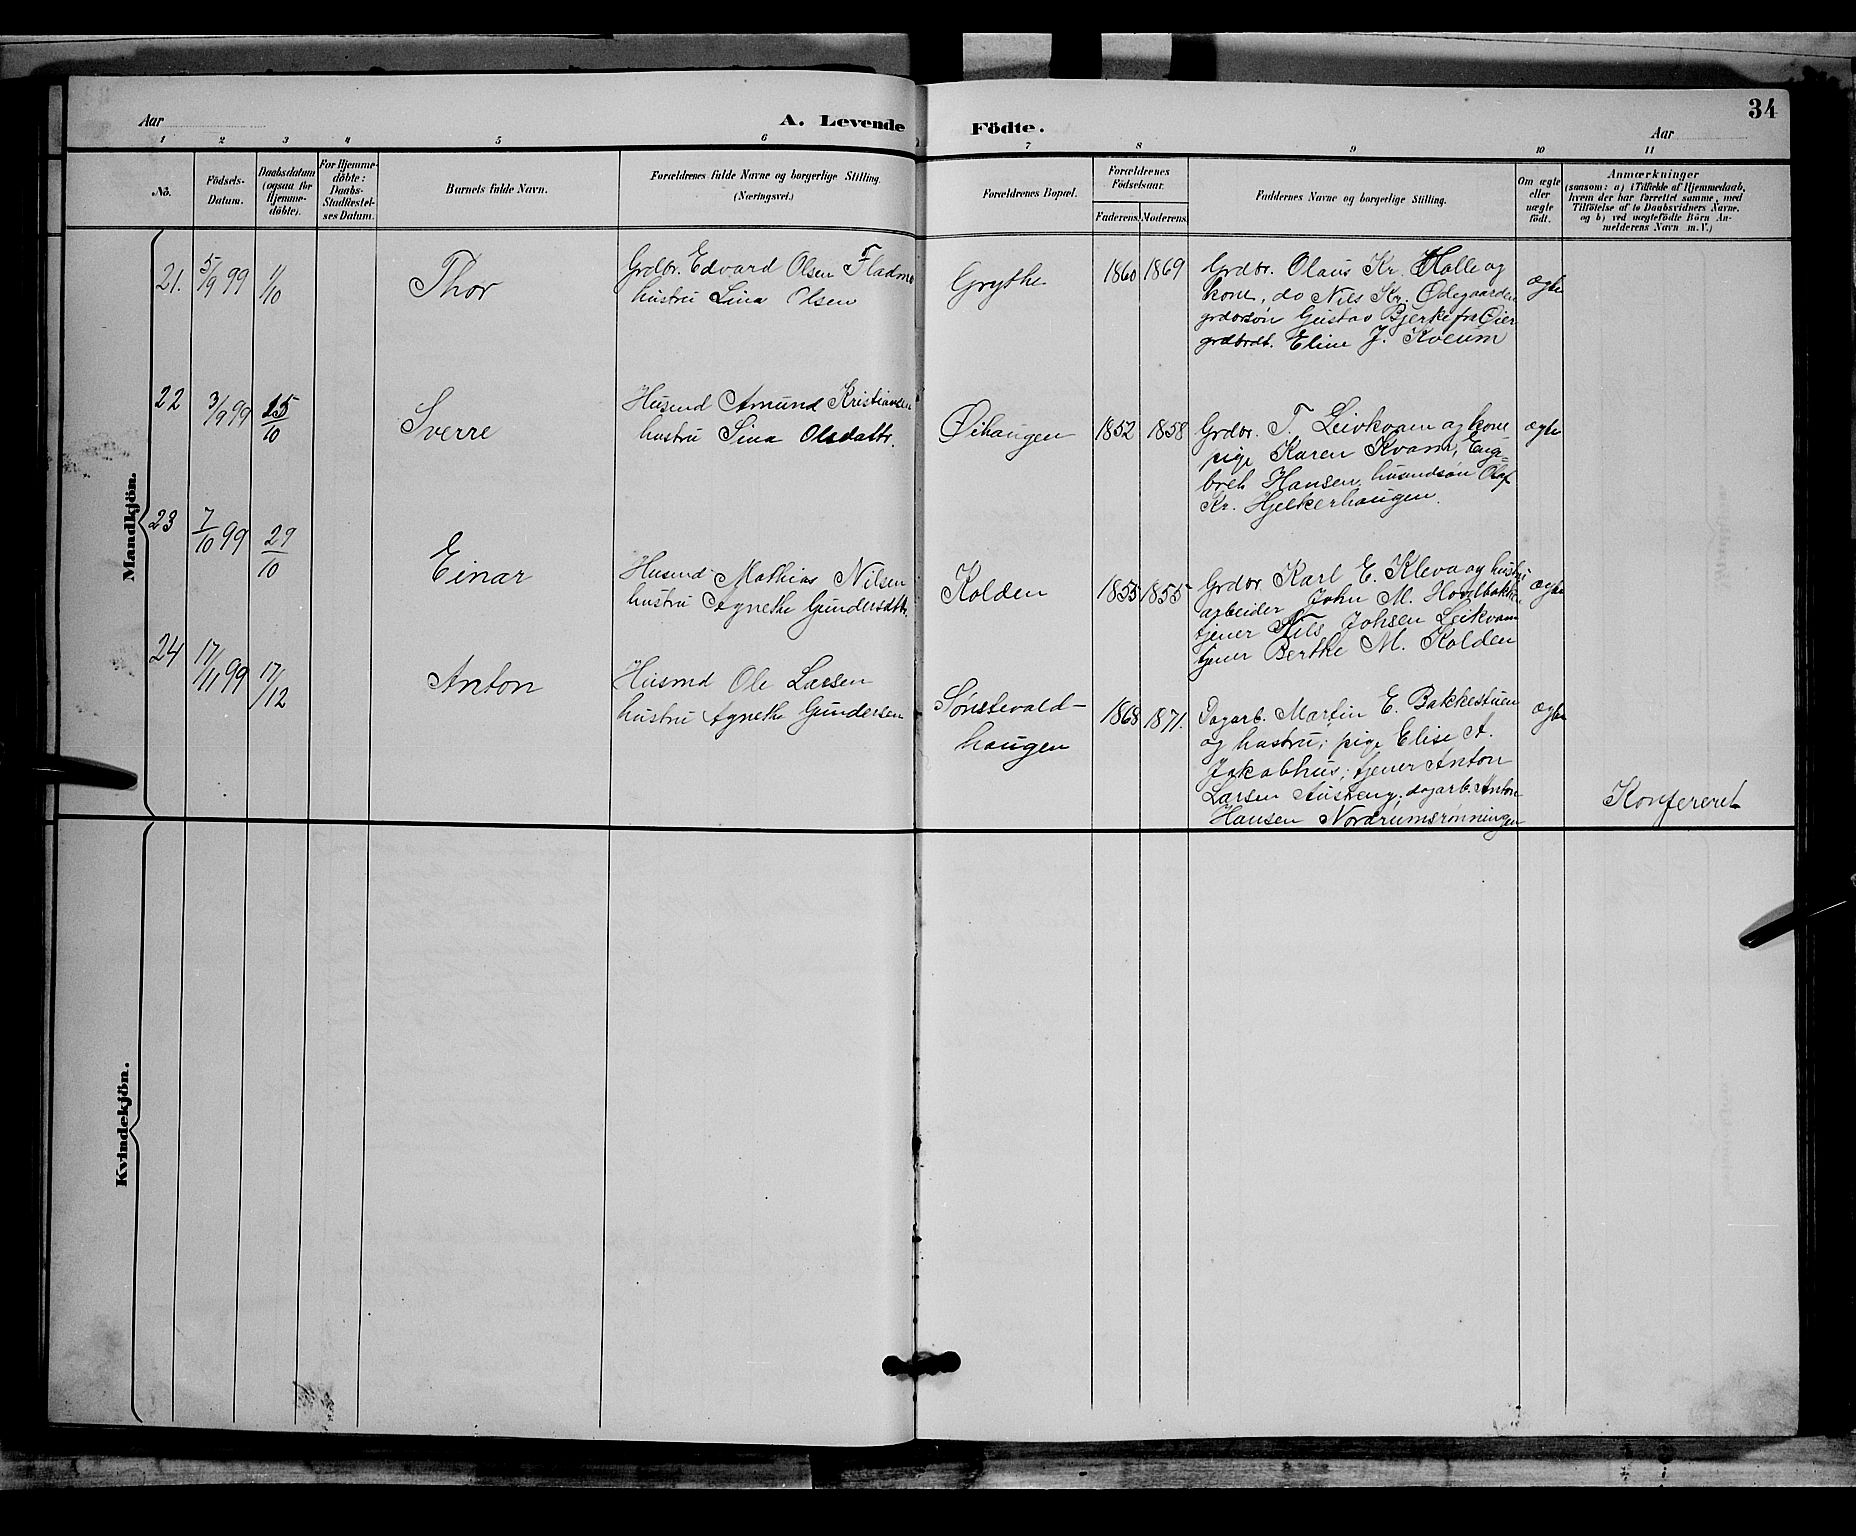 34
Aar
A. Levende Födte.
Aar
1 2 3 4 5 6 7 8 9 10 11
No.
Födsels-
Datum.
Daabsdatum
(ogsaa for
Hjemme-
döbte).
For Hjemme-
döbte:
Daabs-
Stadfæstel-
ses Datum.
Barnets fulde Navn.
Forældrenes fulde Navne og borgerlige Stilling.
(Næringsvei.)
Forældrenes Bopæl.
Forældrenes
Födselsaar.
Faderens. Moderens.
Faddernes Navne og borgerlige Stilling.
Om ægte
eller
uægte
födt.
Anmærkninger
(saasom: a) i Tilfælde af Hjemmedaab,
hvem der har forrettet samme, med
Tilföielse af to Daabsvidners Navne.
og b) ved uægtefödte Börn An-
melderens Navn m. V.)
Mandkjön.
21. 5/9 99 1/10 Thor
Grdbr. Edvard Olsen Fladmo
hustru Lina Olsen
Grythe 1860 1869
Grdbr. Olaus Kr. Holle og
kone, do Nils Kr. Ødegaarden
grdbrsøn Gustav Bjerke fra Øier
grdbrdt. Eline J. Kveum
ægte
22 3/9 99 15/10 Sverre
Husmd Amund Kristiansen
hustru Sina Olsdattr.
Øihaugen 1852 1858
Grdbr. T. Leivkvam og kone
pige Karen Kvam, Eng-
breth Hansen, husmdsøn Olaf
Kr. Hjelkerhaugen.
ægte
23 7/10 99 29/10 Einar
Husmd Mathias Nilsen
hustru Agnethe Gundersdtr.
Kolden 1855 1855
Grdbr. Karl E. Kleva og hustru
arbeider John M. Hovlbakken
tjener Nils Johsen Leikvam
tjener Berthe M. Kolden
ægte
24 17/11 99 17/12 Anton
Husmd Ole Larsen
hustru Agnethe Gundersen
Sønstevald-
haugen
1868 1871.
Dagarb. Martin E. Bakkestuen
og hustru; pige Elise A.
Jakobhus; tjener Anton
Larsen Austeng; dagarb. Anton
Hansen Nordrumsrønningen
ægte
Konfereret
Kvindekjön.